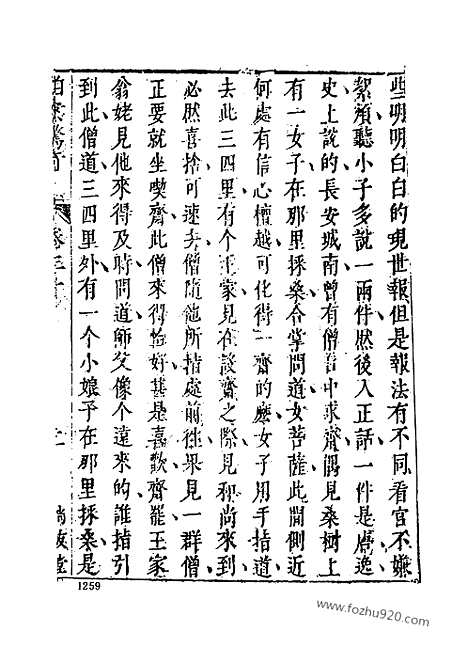 些明明白白的現世報但是報法有不同看官不嫌
絮煩聽小子多說一兩件然後入正話一件是唐逸
史上說的長安城南曾有僧日中求齋偶見桑樹上
有一女子在那里採桑合掌問道女菩薩此間側近
何處有信心檀越可化得一齋的麽女子用手指道
去此三四里有个王家見在設齋之際見和尚來到
必然喜捨可速去僧隨他所指處前往果見一群僧
正要就坐喫齋此僧來得恰好甚是喜歡齋罷王家
翁姥見他來得及時問道師父像个遠來的誰指引
到此僧道三四里外有一个小娘子在那里採桑是
拍案驚奇 卷三十 二 尚友堂
1259
www.fozhu920.com